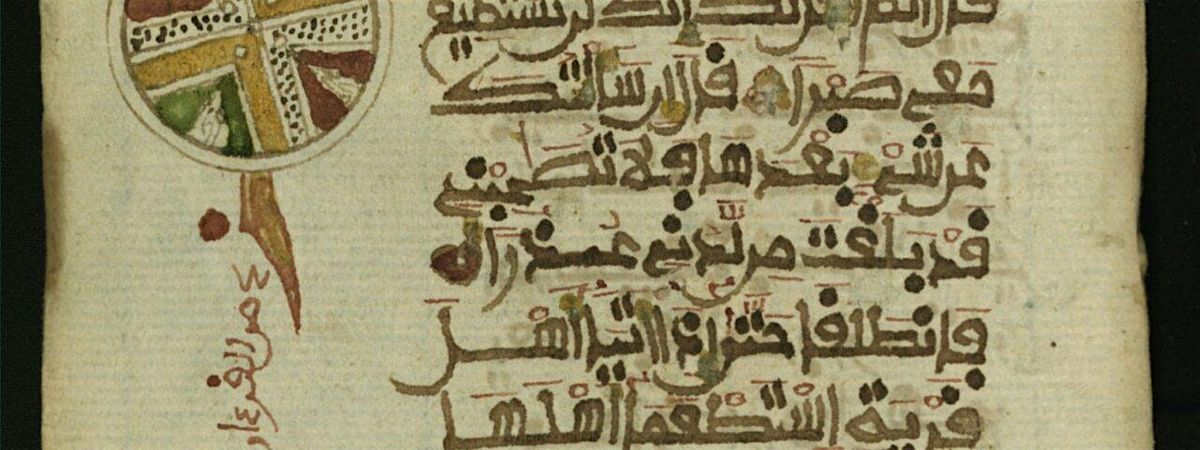 قال الم اقل لك انك لن تستطيع
معي صبرا قال ان سالتك
عن شيء بعدها فلا تصحبني
قد بلغت من لدني عذرا
فانطلقا حتى اذا اتيا اهل
قرية استطعما اهلها